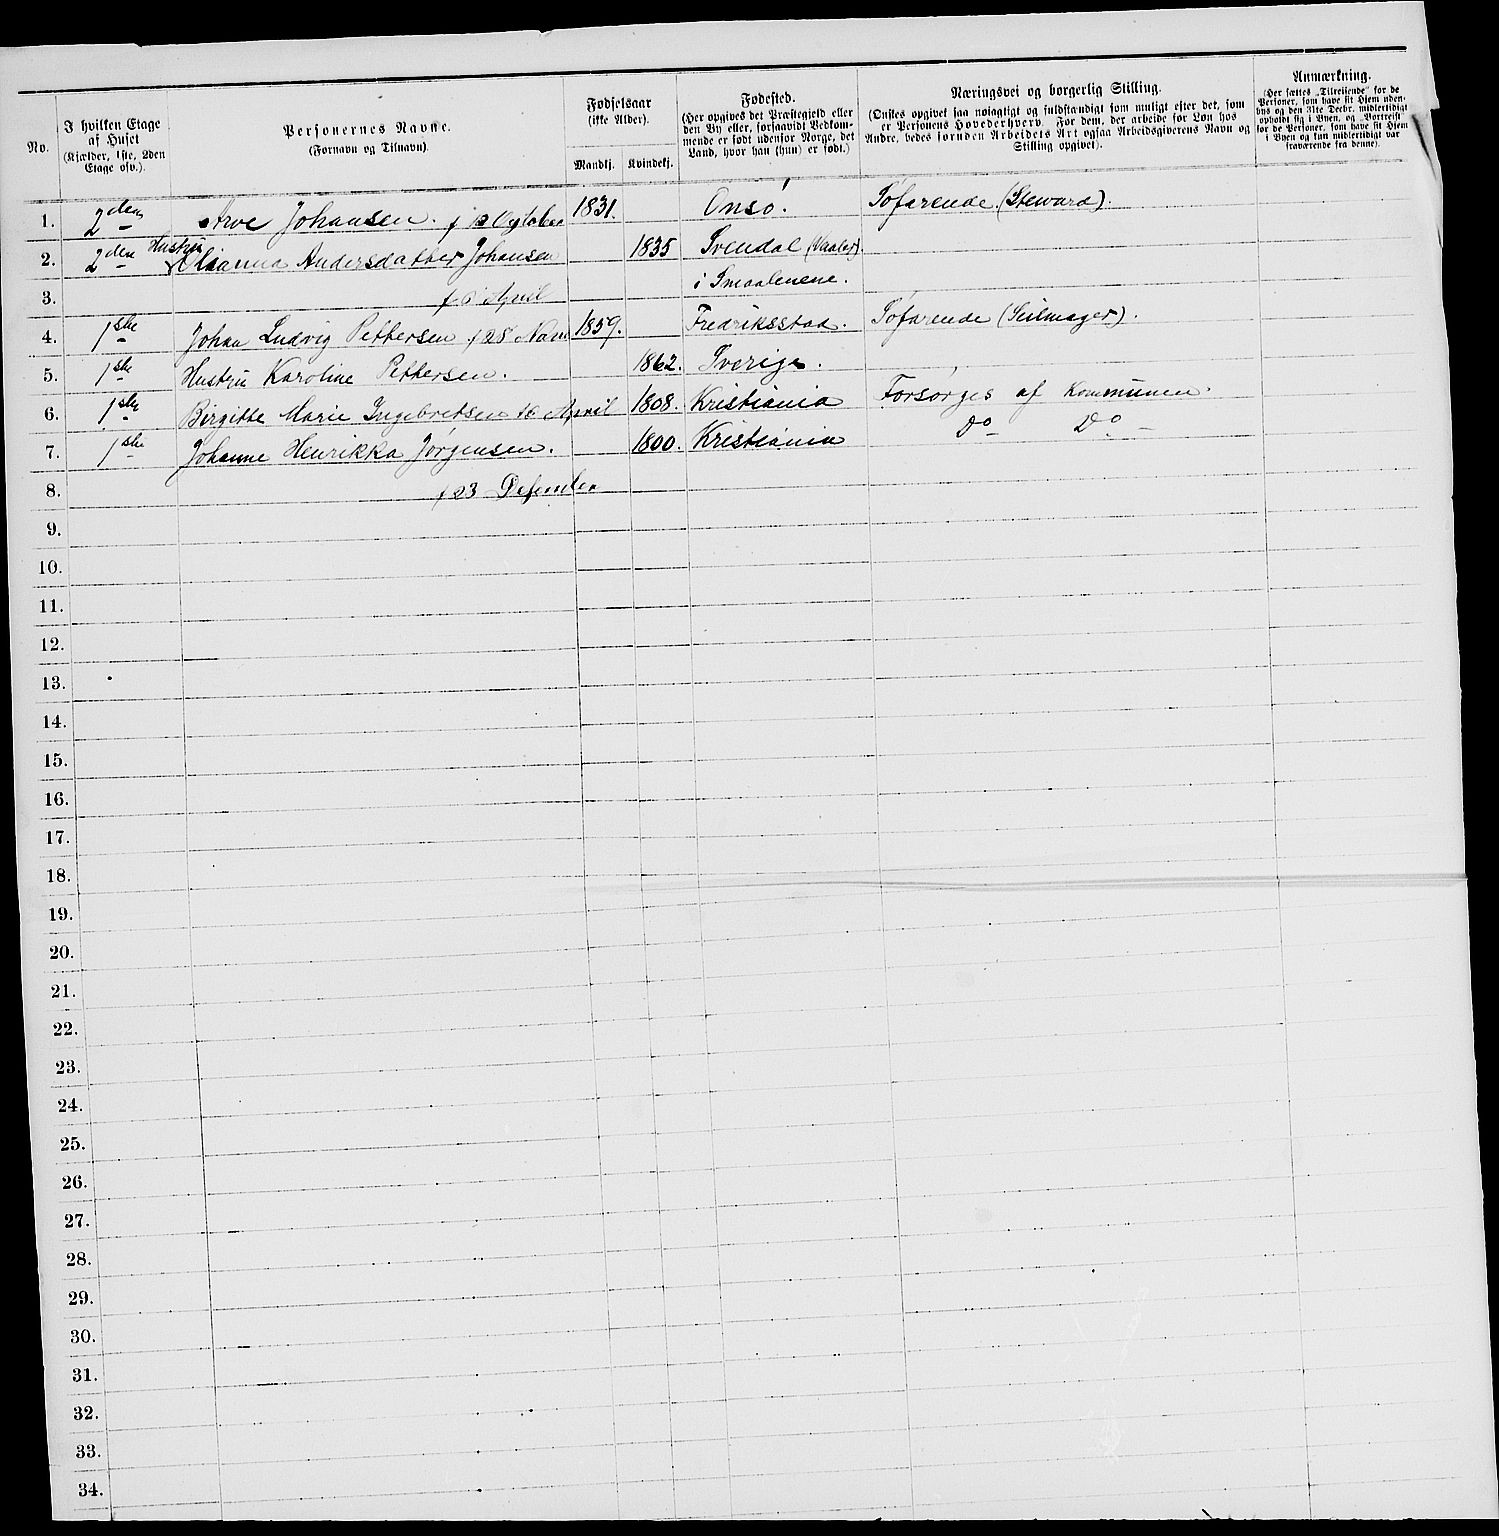 No.
I hvilken Etage
af Huset
(Kjælder, 1ste, 2den
Etage osv.).
Personernes Navne.
(Fornavn og Tilnavn).
Fødselsaar
(ikke Alder).
Mandkj. Kvindekj.
Fødested.
(Her opgives det Præstegjeld eller
den By eller, forsaavidt Vedkom-
mende er født udenfor Norge, det
Land, hvor han (hun) er født.)
Næringsvei og borgerlig Stilling.
(Ønskes opgivet saa nøiagtigt og fuldstændigt som muligt efter det, som
er Personens Hovederhverv. For dem, der arbeide for Løn hos
Andre, bedes foruden Arbeidets Art ogsaa Arbeidsgiverens Navn og
Stilling opgivet).
Anmærkning.
(Her sættes „Tilreisende" for de
Personer, som have sit Hjem uden-
bys og den 31te Decbr. midlertidigt
opholdt sig i Byen, og „Bortreist"
for de Personer, som have sit Hjem
i Byen og kun midlertidigt var
fraværende fra denne).
1. 2den Arve Johansen. f October 1831. Onsö. Söfarende (Steward).
Hustru
2. 2den Andersdatter Johansen 1835 Svendal (Vaaler)
3. f April i Smaalenene.
4. 1ste Johan Ludvig Pettersen f 28 Nov 1859. Fredriksstad. Söfarende (Seilmager).
5. 1ste Hustru Karoline Pettersen. 1862. Sverige.
6. 1ste Birgitte Marie Ingebretsen April 1808. Kristiania Forsörges af Kommunen.
7. 1ste Johanne Henrikka Jörgensen. 1800. Kristiania Do Do
8. f 23 Desember
9.
10.
11.
12.
13.
14.
15.
16.
17.
18.
19.
20.
21.
22.
23.
24.
25.
26.
27.
28.
29.
30.
31.
32.
33.
34.